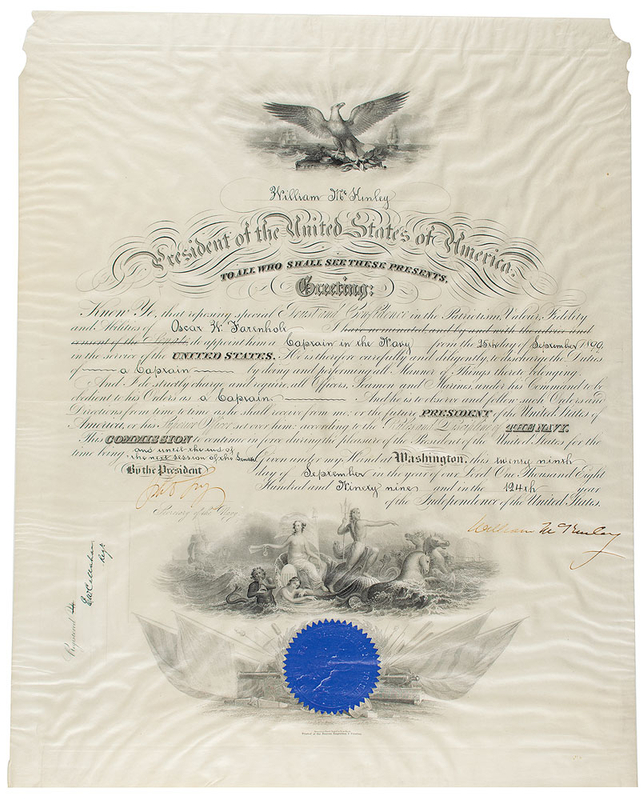 William McKinley
President of the United States of America.
TO ALL WHO SHALL SEE THESE PRESENTS,
Greeting:
Know Ye, that reposing special Trust and Confidence in the Patriotism, Valour, Fidelity
and Abilities of Oscar W. Farenholt I have nominated and by and with the advice and
consent of the Senate do appoint him a Captain in the Navy from the 25th day of September 1899
in the service of the UNITED STATES. He is therefore carefully and diligently to discharge the Duties
of a Captain by doing and performing all Manner of Things thereto belonging.
And I do strictly charge and require all Officers, Seamen and Marines under his Command to be
obedient to his Orders as a Captain And he is to observe and follow such Orders and
Directions from time to time as he shall receive from me, or the future PRESIDENT of the United States of
America, or his Superior Officer set over him, according to the Rules and Discipline of THE NAVY.
This COMMISSION to continue in force during the pleasure of the President of the United States for the
time being and until the end of
the next session of the Senate Given under my Hand at Washington, this twenty ninth
By the President day of September in the year of our Lord One Thousand Eight
Hundred and Ninety nine and in the 124th year
of the Independence of the United States.
Secretary of the Navy
William McKinley